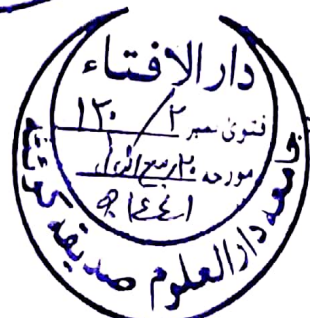 دار الافتاء
فتویٰ نمبر ۲/۱۲۰
مورخہ ۲۰ ربیع
۱٤٤١ھ
جامعہ دارالعلوم صدیقہ کوئٹہ